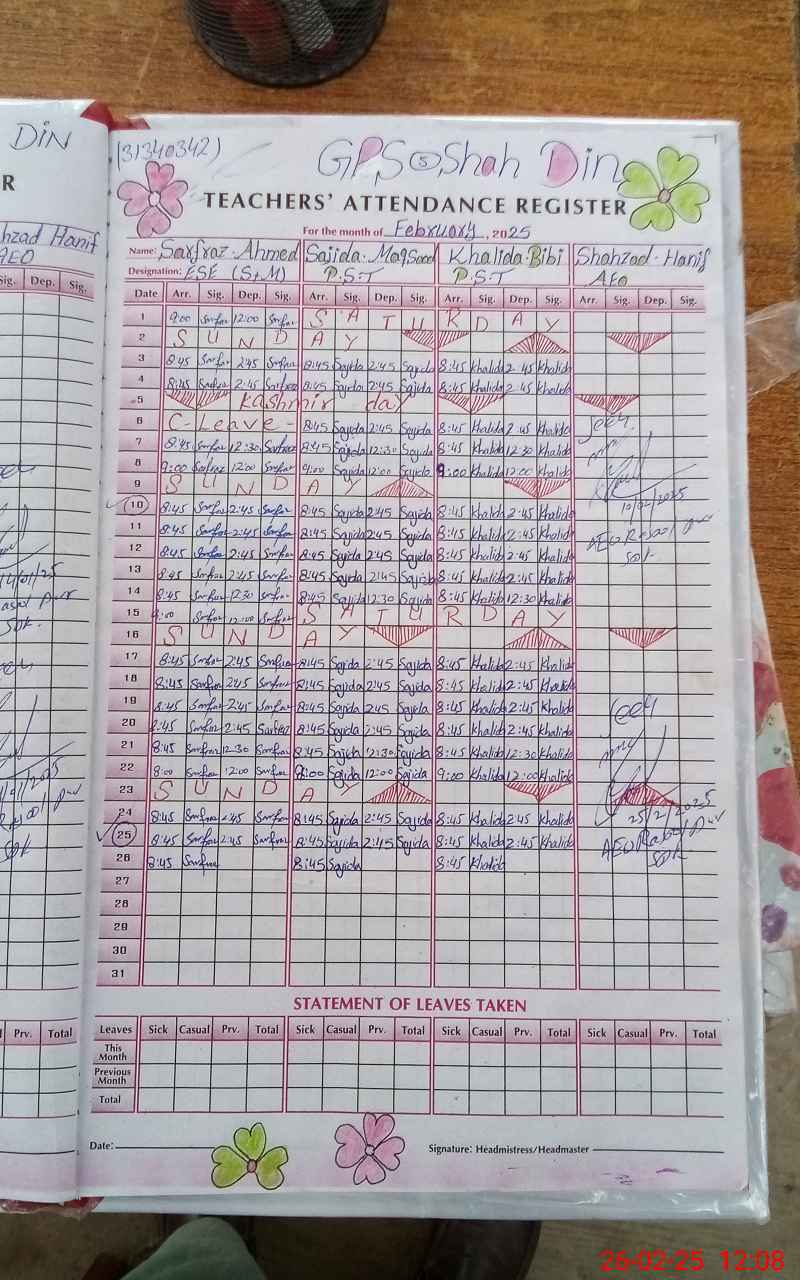 DiN
(31340342)
GPS Shah Din
R
TEACHERS' ATTENDANCE REGISTER
For the month of February, 2025
hzad Hanif
AEO
Name: Sarfraz Ahmed Sajida Maqsood Khalida Bibi Shahzad Hanif
Designation: ESE (S+M) P.S.T P.S.T AEO
Sig. Dep. Sig.
Date Arr. Sig. Dep. Sig. Arr. Sig. Dep. Sig. Arr. Sig. Dep. Sig. Arr. Sig. Dep. Sig.
1 9:00 12:00 SATURDAY
2 SUNDAY
3 8:45 2:45 8:45 Sajida 2:45 Sajida 8:45 Khalida 2:45 Khalida
4 8:45 2:45 8:45 Sajida 2:45 Sajida 8:45 Khalida 2:45 Khalida
5 Kashmir day
6 C-Leave- 8:45 Sajida 2:45 Sajida 8:45 Khalida 2:45 Khalida
7 8:45 12:30 8:45 Sajida 12:30 Sajida 8:45 Khalida 12:30 Khalida
8 9:00 Sarfraz 12:00 9:00 Sajida 12:00 Sajida 9:00 Khalida 12:00 Khalida
9 SUNDAY
10 8:45 2:45 8:45 Sajida 2:45 Sajida 8:45 Khalida 2:45 Khalida
10/02/2025
11 8:45 2:45 8:45 Sajida 2:45 Sajida 8:45 Khalida 2:45 Khalida
12 8:45 2:45 8:45 Sajida 2:45 Sajida 8:45 Khalida 2:45 Khalida
13 8:45 2:45 8:45 Sajida 2:45 Sajida 8:45 Khalida 2:45 Khalida
14 8:45 12:30 8:45 Sajida 12:30 Sajida 8:45 Khalida 12:30 Khalida
15 9:00 12:00 SATURDAY
16 SUNDAY
17 8:45 2:45 8:45 Sajida 2:45 Sajida 8:45 Khalida 2:45 Khalida
18 8:45 2:45 8:45 Sajida 2:45 Sajida 8:45 Khalida 2:45 Khalida
19 8:45 2:45 8:45 Sajida 2:45 Sajida 8:45 Khalida 2:45 Khalida
20 8:45 2:45 Sarfraz 8:45 Sajida 2:45 Sajida 8:45 Khalida 2:45 Khalida
21 8:45 12:30 8:45 Sajida 12:30 Sajida 8:45 Khalida 12:30 Khalida
22 8:00 12:00 9:00 Sajida 12:00 Sajida 9:00 Khalida 12:00 Khalida
23 SUNDAY
24 8:45 2:45 8:45 Sajida 2:45 Sajida 8:45 Khalida 2:45 Khalida
25/2/2025
25 8:45 2:45 8:45 Sajida 2:45 Sajida 8:45 Khalida 2:45 Khalida
26 8:45 8:45 Sajida 8:45 Khalida
27
28
29
30
31
STATEMENT OF LEAVES TAKEN
Prv. Total
Leaves Sick Casual Prv. Total Sick Casual Prv. Total Sick Casual Prv. Total Sick Casual Prv. Total
This Month
Previous Month
Total
Date:
Signature: Headmistress/Headmaster
26-02-25 12:08